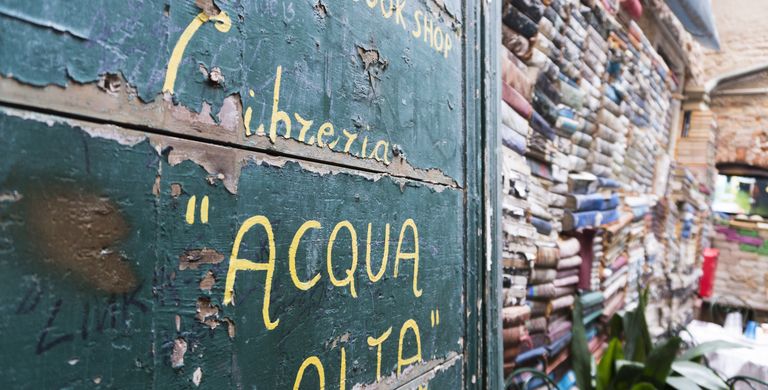 BOOK SHOP
Libreria
"ACQUA
ALTA"
LINK